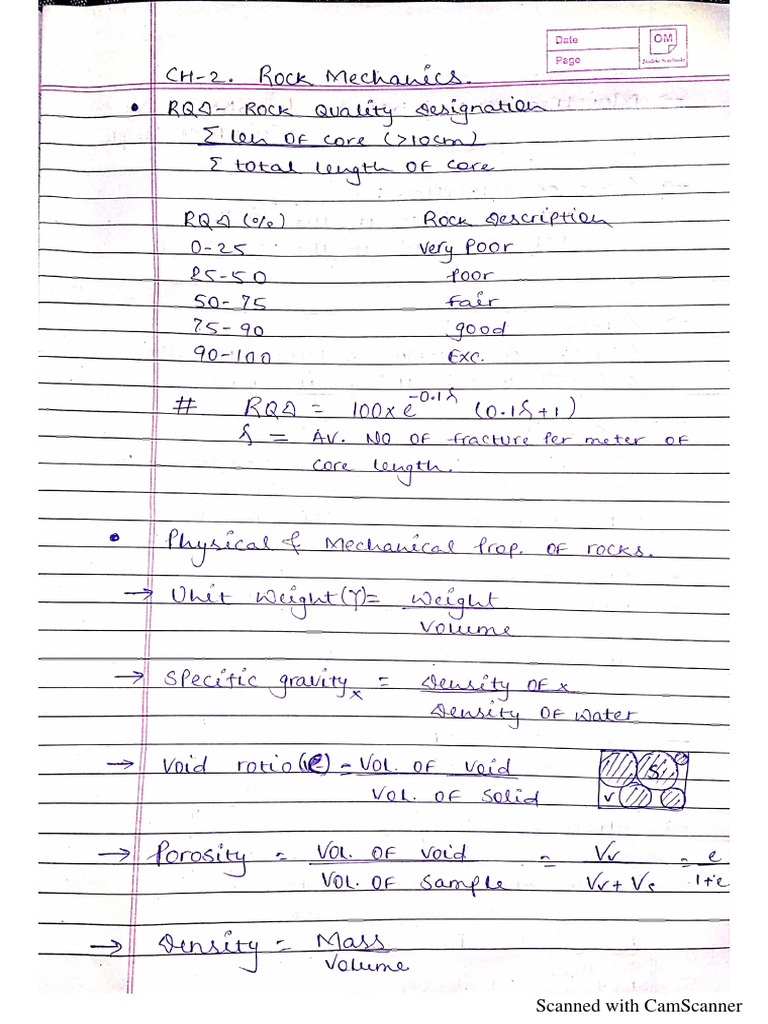 Date
OM
Page
CH-2. Rock Mechanics.
• RQD- Rock Quality Designation
Σ len of core (>10cm)
Σ total length of core
RQD (%) Rock Description
0-25 very Poor
25-50 Poor
50-75 Fair
75-90 good
90-100 Exc.
# RQD = 100xe^-0.1λ (0.1λ+1)
λ = Av. No of fracture per meter of
core length.
• Physical & Mechanical prop. of rocks.
→ Unit weight(γ)= Weight
Volume
→ Specific gravity x = Density of x
Density of water
→ Void ratio(e) = Vol. of void
Vol. of solid
S
V
→ Porosity = Vol. of void = Vv = e
Vol. of sample Vv + Vs 1+e
→ Density = Mass
Volume
Scanned with CamScanner